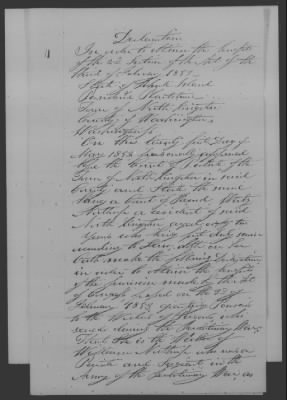 Declaration
In order to obtain the benefit
of the 2d Section of the Act of the
third of February 1853
State of Rhode Island
Providence Plantations
Town of North Kingstown
County of Washington
Washington Ss
On this twenty first Day of
May 1853 personally appeared
before the Court of Probate of the
Town of North Kingstown in said
County and State the same
being a Court of Record
Northup a resident of said
North Kingstown aged
years who being first duly sworn
according to Law, doth on her
oath make the following Declaration
in order to obtain the benefit
of the provision made by the Act
of Congress passed on the 3d of
February 1853 granting Pensions
to the Widows of Persons who
served during the Revolutionary War
That she is the Widow of
Northup who was a
Private and Sergeant in the
Army of the Revolutionary War as